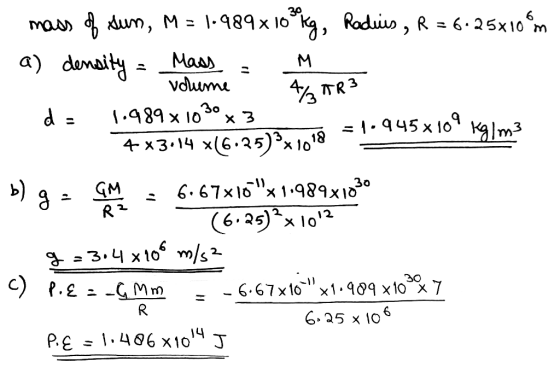 mass of sun, M = 1.989 x 10^30 kg, Radius, R = 6.25x10^6 m
a) density = Mass / volume = M / 4/3 πR^3
d = 1.989 x 10^30 x 3 / 4 x 3.14 x (6.25)^3 x 10^18 = 1.945 x 10^9 kg/m3
b) g = GM / R^2 = 6.67x10^-11 x 1.989x10^30 / (6.25)^2 x 10^12
g = 3.4 x 10^6 m/s^2
c) P.E = -G Mm / R = - 6.67x10^-11 x 1.989 x 10^30 x 7 / 6.25 x 10^6
P.E = 1.486 x10^14 J